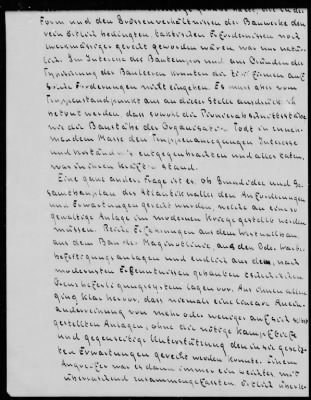 Form und den Grössenverhältnissen der Bauwerke den
rein örtlich bedingten, taktischen Erfordernissen noch
zweckmässiger gerecht geworden wären, war uns natür-
lich. Im Interesse des Bautempos und aus Gründen der
Typisierung des Bauwesens konnten die Firmen auf
solche Forderungen nicht eingehen. Es muss aber vom
Truppenstandpunkt aus an dieser Stelle ausdrücklich
betont werden, dass sowohl die Pionierabschnittsstäbe
wie die Baustäbe der Organisation Todt in zuneh-
mendem Masse den Truppenanregungen Interesse
und Verständnis entgegenbrachten und alles taten,
was in ihren Kräften stand.
Eine ganz andere Frage ist es, ob Grundidee und Ge-
samtbauplan des Atlantikwalles den Anforderungen
und Erwartungen gerecht wurden, welche an eine so
gewaltige Anlage im modernen Kriege gestellt werden
müssen. Reiche Erfahrungen aus dem Westwallbau,
aus dem Bau der Maginotlinie, aus den Oder-Warthe-
befestigungsanlagen und endlich aus dem, nach
modernsten Erkenntnissen gebauten tschechischen
Grenzbefestigungssystem lagen vor. Aus ihnen allen
ging klar hervor, dass niemals eine lineare Anein-
anderreihung von mehr oder weniger auf sich selbst
gestellten Anlagen, ohne die nötige Kampftiefe
und gegenseitige Unterstützung den in sie gesetz-
ten Erwartungen gerecht werden konnte. Einem
Angreifer war es dann immer ein leichtes, mit
überraschend zusammengefassten, örtlich überle-